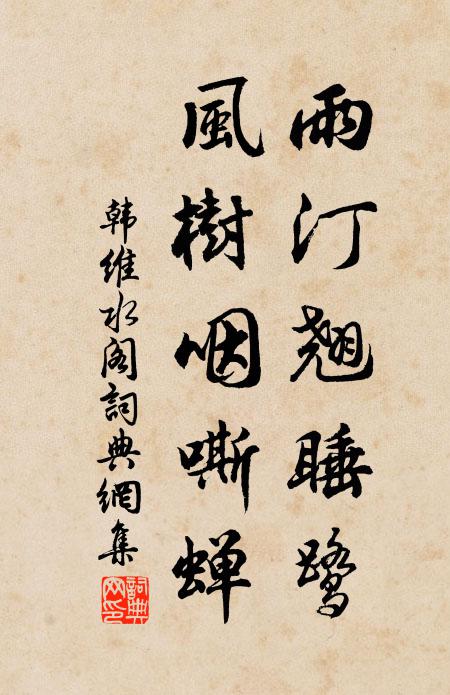 雨汀翘睡鹭
風樹咽嘶蝉
韩维水阁詞典網集
詞典